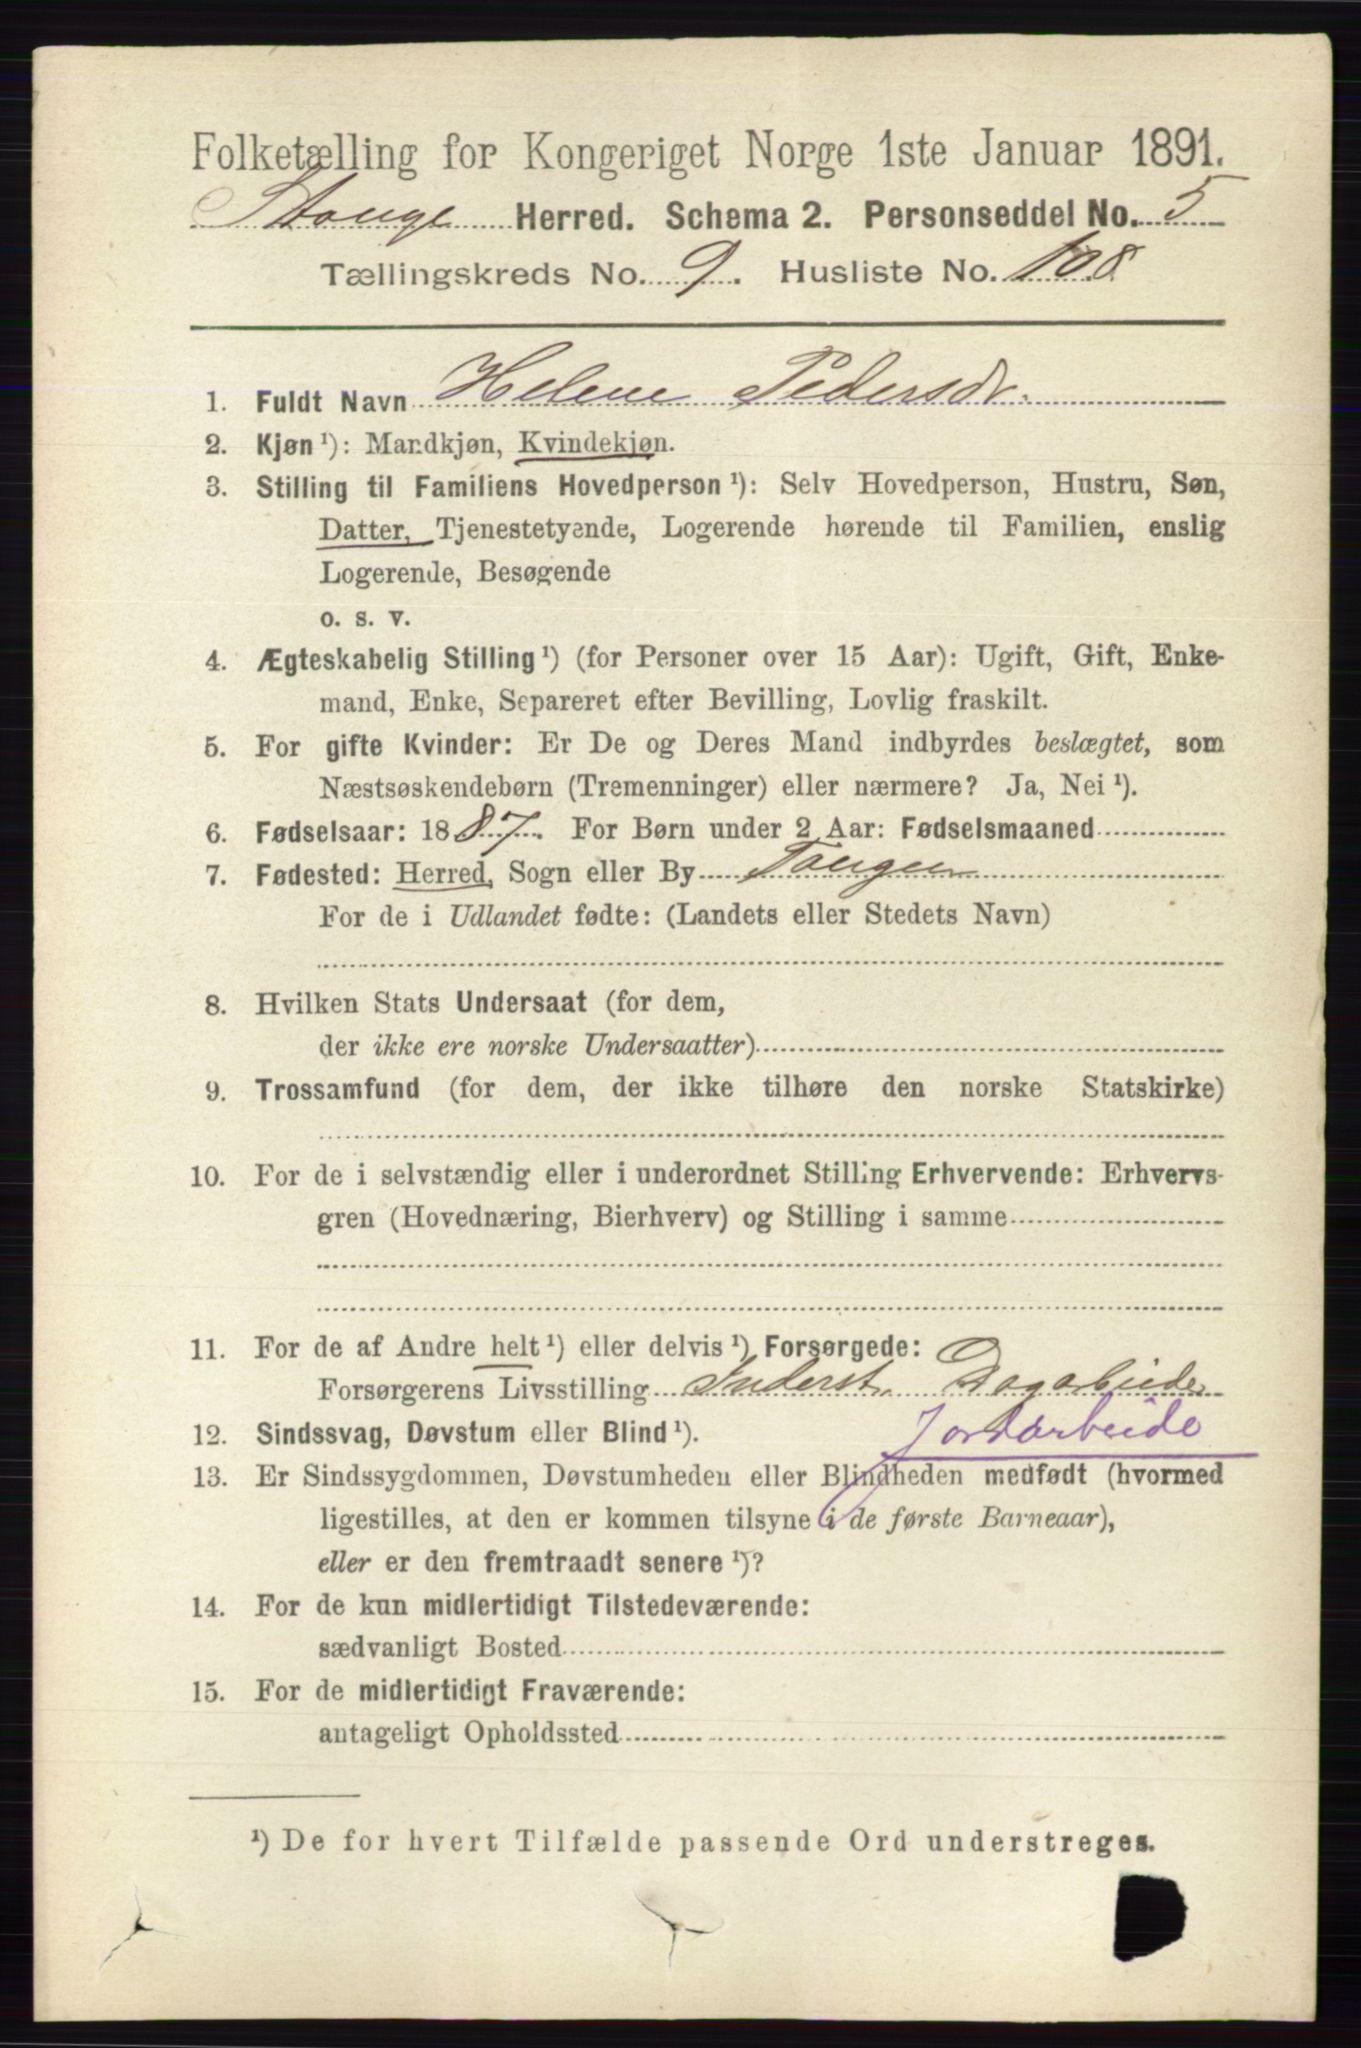 Folketælling for Kongeriget Norge 1ste Januar 1891.
Stange Herred. Schema 2. Personseddel No. 5
Tællingskreds No. 9. Husliste No. 108
1. Fuldt Navn Helene Pedersdr.
2. Kjøn¹): Mandkjøn, Kvindekjøn.
3. Stilling til Familiens Hovedperson¹): Selv Hovedperson, Hustru, Søn,
Datter, Tjenestetyende, Logerende hørende til Familien, enslig
Logerende, Besøgende
o. s. v.
4. Ægteskabelig Stilling¹) (for Personer over 15 Aar): Ugift, Gift, Enke-
mand, Enke, Separeret efter Bevilling, Lovlig fraskilt.
5. For gifte Kvinder: Er De og Deres Mand indbyrdes beslægtet, som
Næstsøskendebørn (Tremenninger) eller nærmere? Ja, Nei¹).
6. Fødselsaar: 1887. For Børn under 2 Aar: Fødselsmaaned
7. Fødested: Herred, Sogn eller By Tangen
For de i Udlandet fødte: (Landets eller Stedets Navn)
8. Hvilken Stats Undersaat (for dem,
der ikke ere norske Undersaatter)
9. Trossamfund (for dem, der ikke tilhøre den norske Statskirke)
10. For de i selvstændig eller i underordnet Stilling Erhvervende: Erhvervs-
gren (Hovednæring, Bierhverv) og Stilling i samme
11. For de af Andre helt¹) eller delvis¹) Forsørgede:
Forsørgerens Livsstilling Inderst, Dagarbeide
Jordarbeide
12. Sindssvag, Døvstum eller Blind¹).
13. Er Sindssygdommen, Døvstumheden eller Blindheden medfødt (hvormed
ligestilles, at den er kommen tilsyne i de første Barneaar),
eller er den fremtraadt senere¹)?
14. For de kun midlertidigt Tilstedeværende:
sædvanligt Bosted
15. For de midlertidigt Fraværende:
antageligt Opholdssted
¹) De for hvert Tilfælde passende Ord understreges.